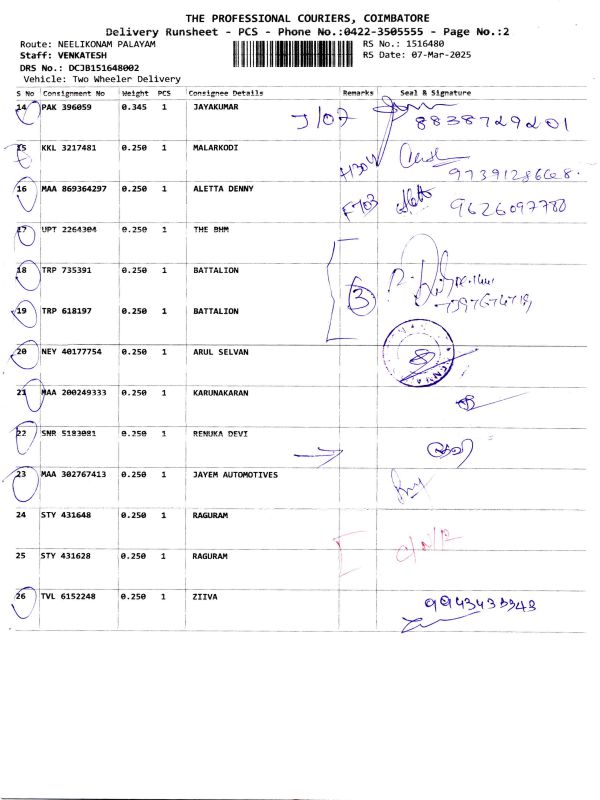 THE PROFESSIONAL COURIERS, COIMBATORE
Delivery Runsheet - PCS - Phone No.:0422-3505555 - Page No.:2
Route: NEELIKONAM PALAYAM RS No.: 1516480
Staff: VENKATESH RS Date: 07-Mar-2025
DRS No.: DCJB151648002
Vehicle: Two Wheeler Delivery
S No Consignment No Weight PCS Consignee Details Remarks Seal & Signature
14 PAK 396059 0.345 1 JAYAKUMAR J/07
8838729201
15 KKL 3217481 0.250 1 MALARKODI H304
9739128668
16 MAA 869364297 0.250 1 ALETTA DENNY F703
9626097780
17 UPT 2264304 0.250 1 THE BHM
18 TRP 735391 0.250 1 BATTALION 3
19 TRP 618197 0.250 1 BATTALION
20 NEY 40177754 0.250 1 ARUL SELVAN
21 MAA 200249333 0.250 1 KARUNAKARAN
22 SNR 5183081 0.250 1 RENUKA DEVI
23 MAA 302767413 0.250 1 JAYEM AUTOMOTIVES
24 STY 431648 0.250 1 RAGURAM
25 STY 431628 0.250 1 RAGURAM
26 TVL 6152248 0.250 1 ZIIVA 9943433343